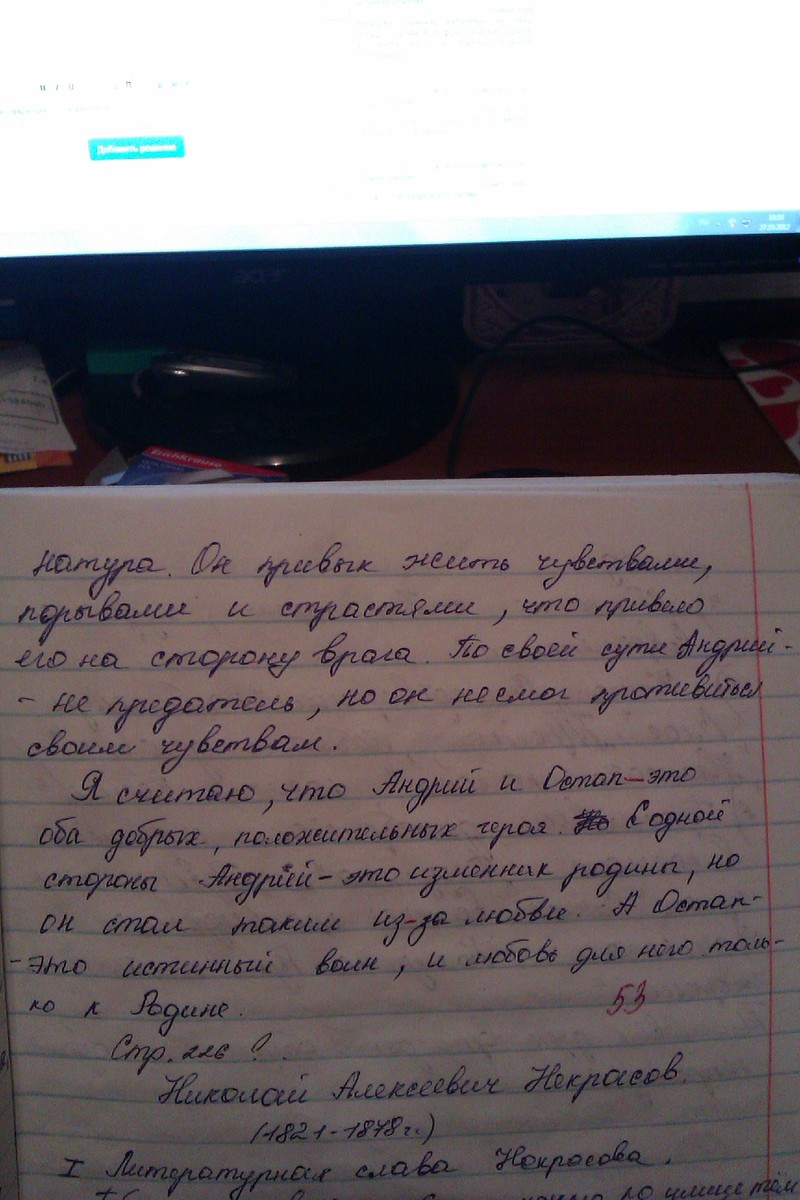 Добавить решение
acer
ErichKrause
натура. Он привык жить чувствами,
порывами и страстями, что привело
его на сторону врага. По своей сути Андрий -
- не предатель, но он не смог противиться
своим чувствам.
Я считаю, что Андрий и Остап - это
оба добрых, положительных героя. С одной
стороны Андрий - это изменник родины, но
он стал таким из-за любви. А Остап -
- это истинный воин, и любовь для него толь-
ко к Родине.
53
Стр. 226 ?
Николай Алексеевич Некрасов.
(1821-1878 г.)
I Литературная слава Некрасова.
по улице тём